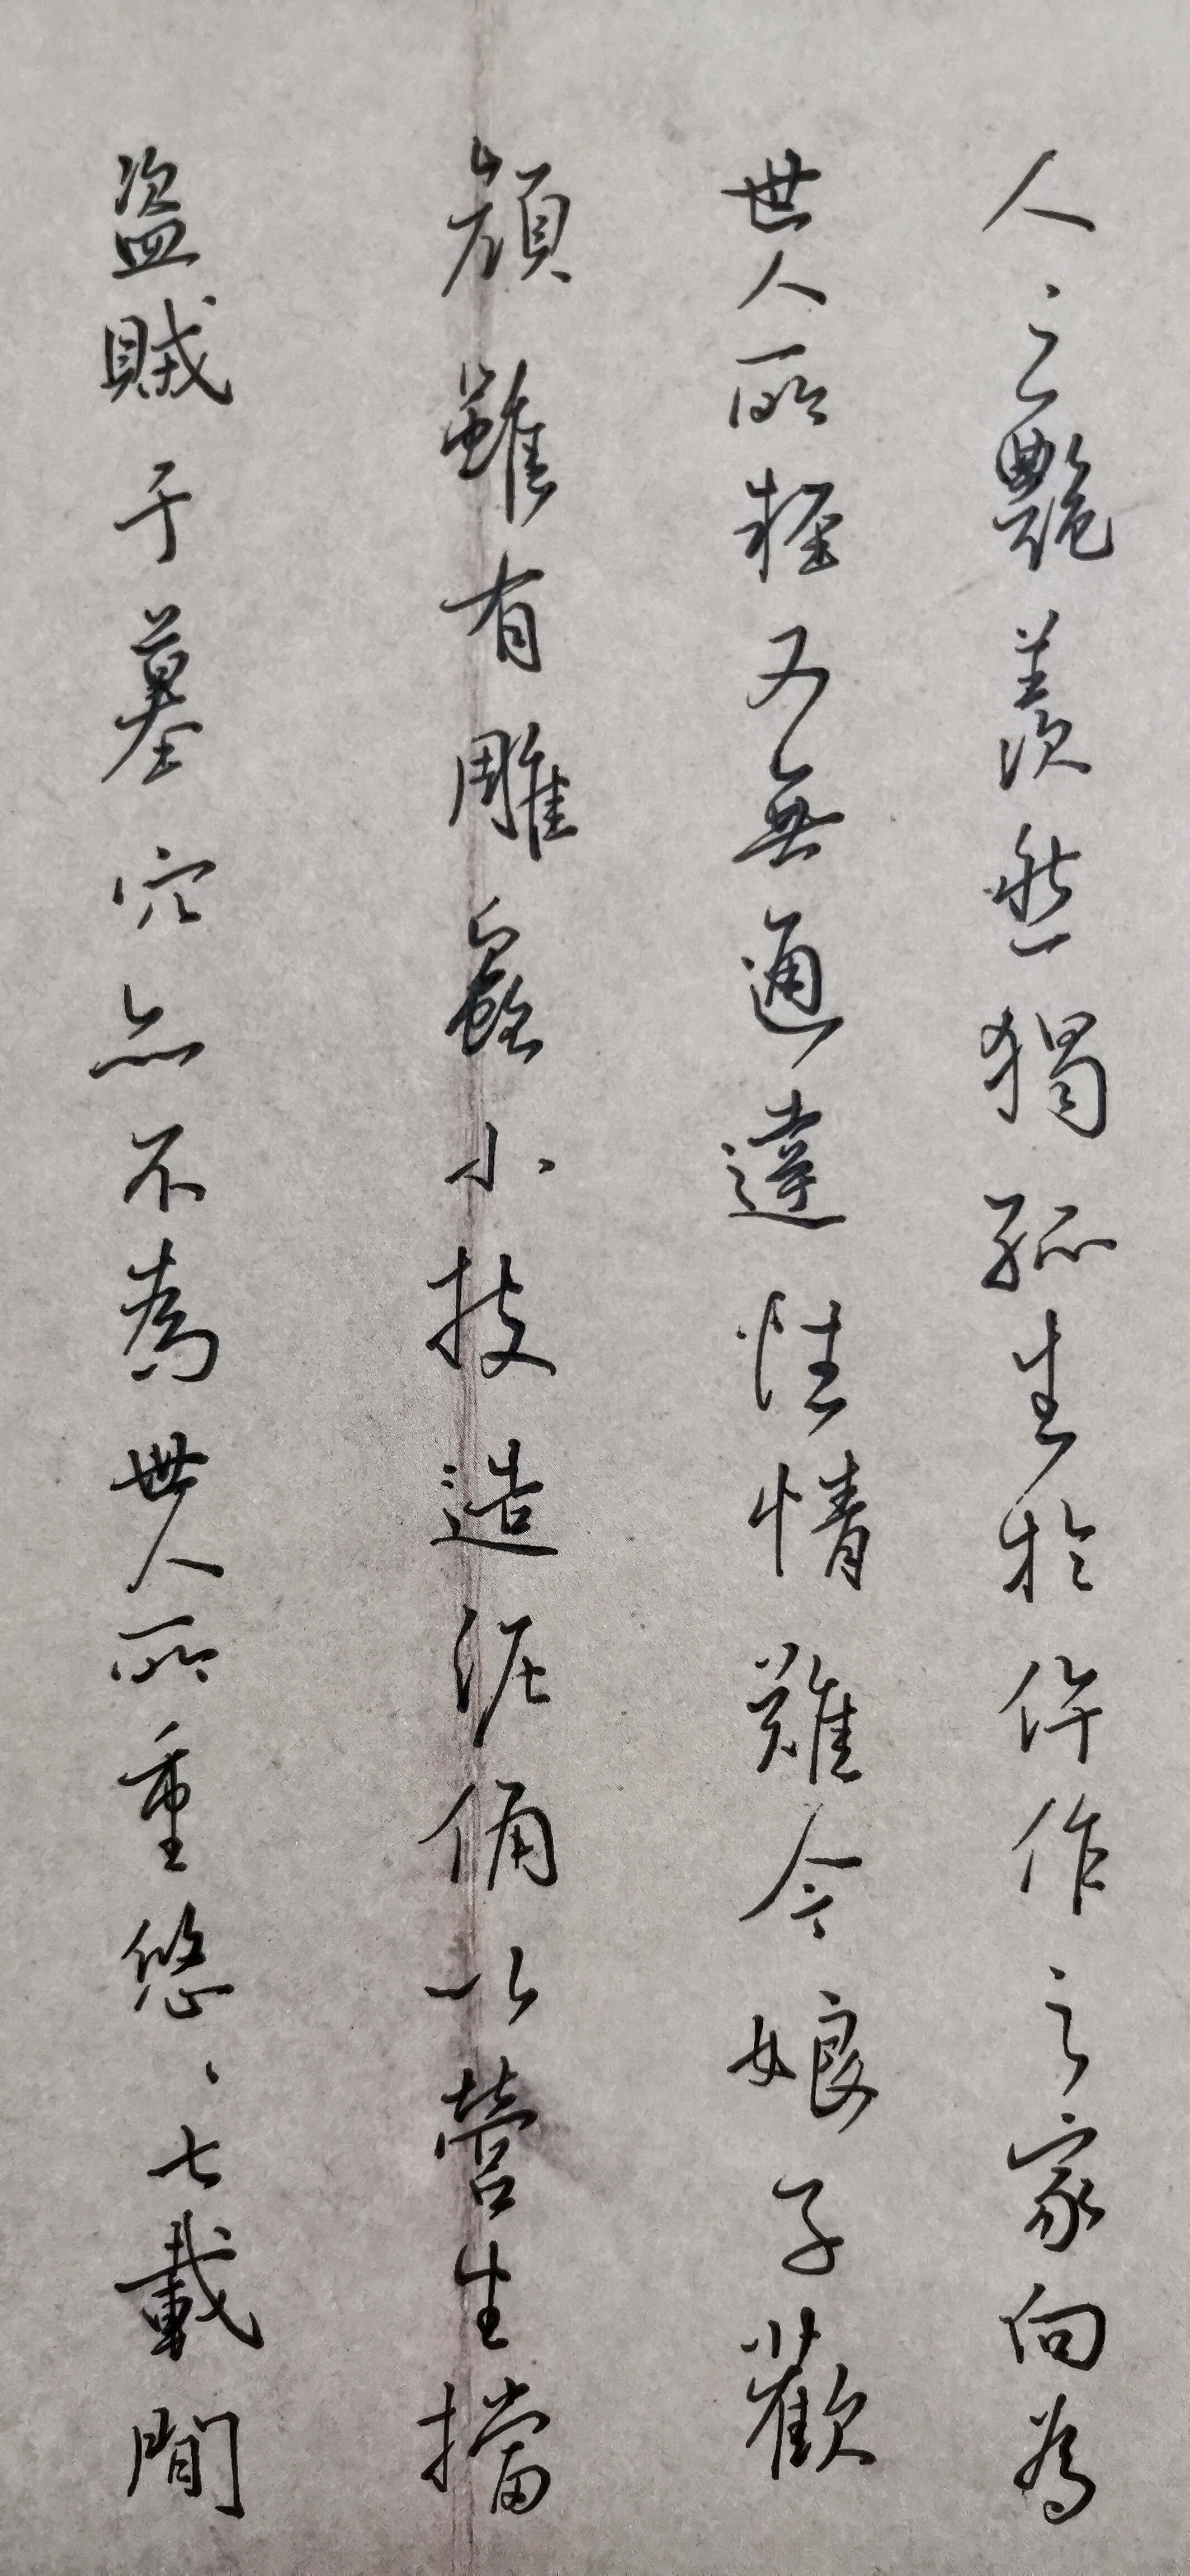 人之艷羡然獨孤生於仵作之家向為
世人所輕又無通達性情難令娘子歡
顔雖有雕蟲小技造泥俑以營生擋
盜賊于墓穴亦不為世人所重悠、七載間